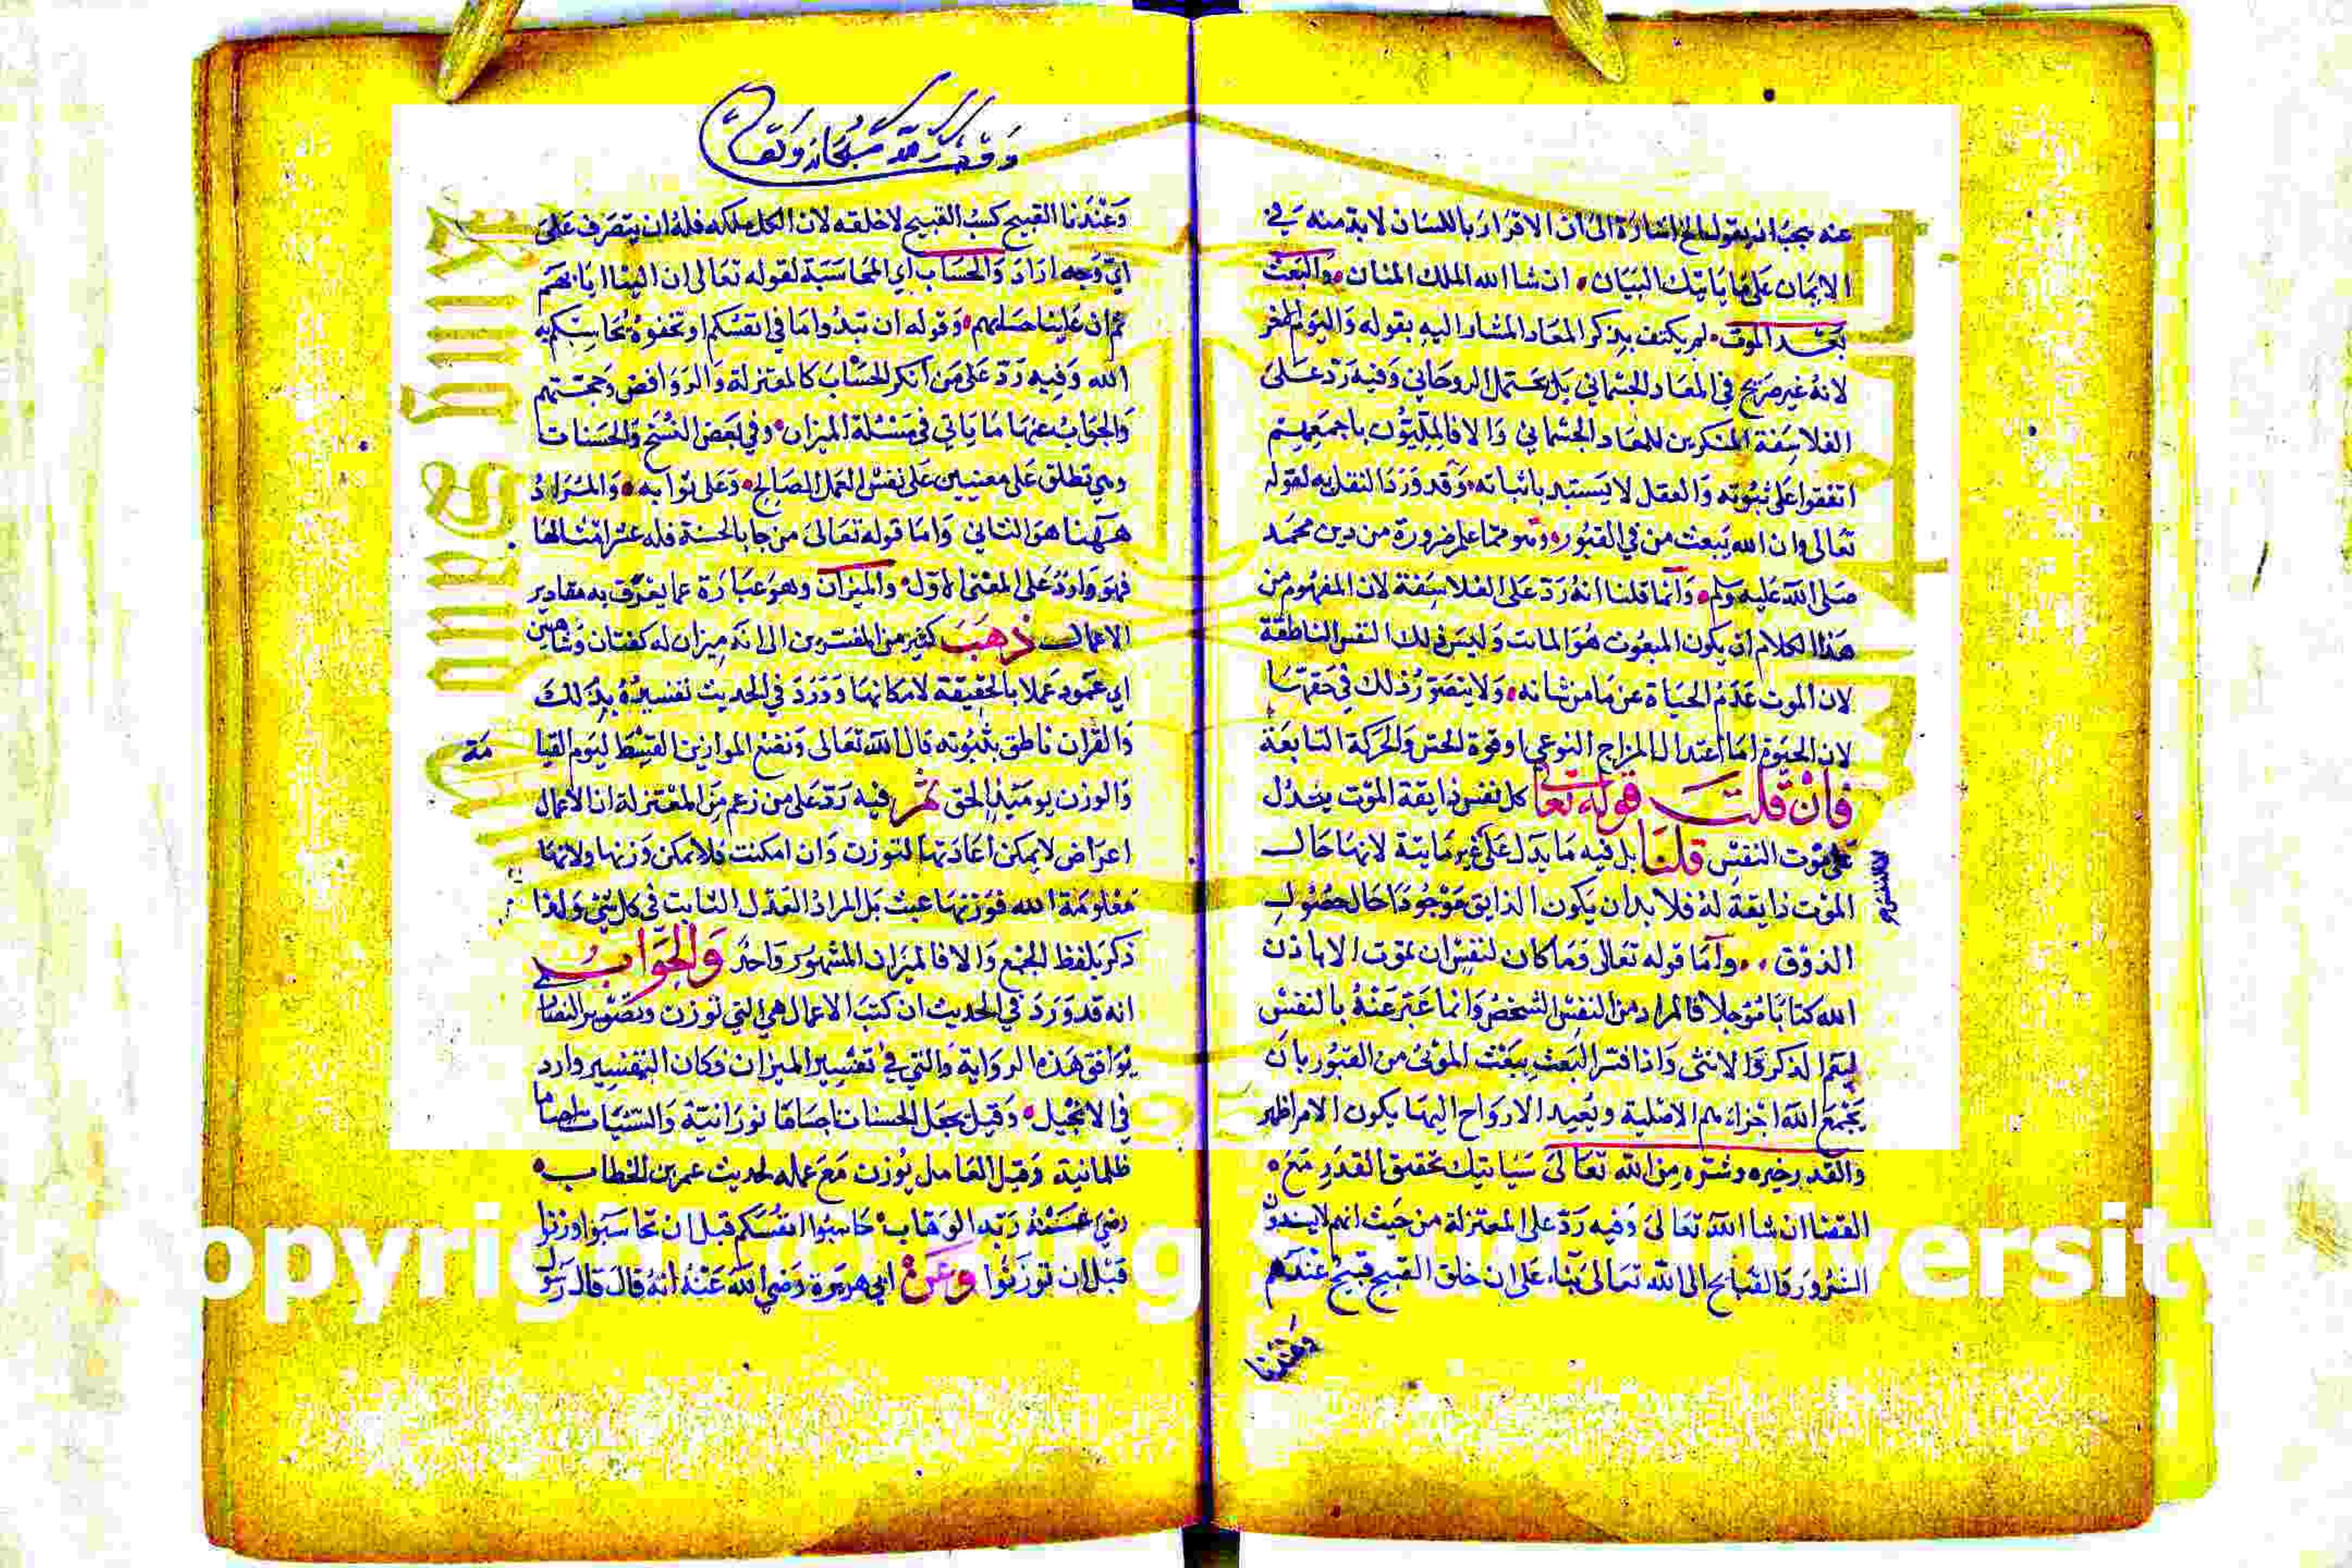 عنه يجب ان يقول الخ اشارة الى ان الاقرار باللسان لا بد منه في
الايمان على ما ياتيك البيان ان شا الله الملك المنان والبعث
بعد الموت لم يكتف بذكر المعاد المشار اليه بقوله واليوم الاخر
لانه غير صريح في المعاد الجسماني بل يحتمل الروحاني وفيه رد على
الفلاسفة المنكرين للمعاد الجسماني والا فالمليون باجمعهم
اتفقوا على ثبوته والعقل لا يستبد باثباته وقد ورد النقل به لقوله
تعالى وان الله يبعث من في القبور وهو مما علم ضرورة من دين محمد
صلى الله عليه وسلم وانما قلنا انه رد على الفلاسفة لان المفهوم من
هذا الكلام ان يكون المبعوث هو المات وليس ذلك النفس الناطقة
لان الموت عدم الحياة عن ما من شانه ولا يتصور ذلك في حقها
لان الحيوة اما اعتدال المزاج النوعي او قوة الحس والحركة التابعة
فان قلت قوله تعا كل نفس ذايقة الموت يدل
على موت النفس قلنا بل فيه ما يدل على غير مايتة لانها حال
الموت ذايقة له فلا بد ان يكون الذايق موجودا حال حصول
الذوق واما قوله تعالى وما كان لنفس ان تموت الا باذن
الله كتابا مؤجلا فالمراد من النفس الشخص وانما عبر عنه بالنفس
ليعم الذكر والانثى واذا فسر البعث ببعث الموتى من القبور بان
يجمع الله اجزاءهم الاصلية ويعيد الارواح اليها يكون الامر اظهر
والقدر خيره وشره من الله تعالى سياتيك تحقيق القدر مع
القضا ان شا الله تعالى وفيه رد على المعتزلة من حيث انهم لا يسندون
الشرور والقبايح الى الله تعالى بناء على ان خلق القبيح قبيح عندهم
وعندنا
وقف لله سبحانه وتعالى
وعندنا القبيح كسب القبيح لا خلقه لان الكل ملكه فله ان يتصرف على
اي وجه اراد والحساب اي المحاسبة لقوله تعالى ان الينا ايابهم
ثم ان علينا حسابهم وقوله ان تبدوا ما في انفسكم او تخفوه يحاسبكم به
الله وفيه رد على من انكر الحساب كالمعتزلة والروافض وحجتهم
والجواب عنها ما ياتي في مسئلة الميزان وفي بعض النسخ والحسنات
وهي تطلق على معنيين على نفس العمل الصالح وعلى ثوابه والمراد
ههنا هو الثاني واما قوله تعالى من جا بالحسنة فله عشر امثالها
فهو وارد على المعنى الاول والميزان وهو عبارة عما يعرف به مقادير
الاعمال ذهب كثير من المفسرين الى انه ميزان له كفتان وشاهين
اي عمود عملا بالحقيقة لامكانها وورد في الحديث تفسيره بذلك
والقران ناطق بثبوته قال الله تعالى ونضع الموازين القسط ليوم القيا
مة
والوزن يومئذ الحق ثم فيه رد على من زعم من المعتزلة ان الاعمال
اعراض لا يمكن اعادتها لتوزن وان امكنت فلا يمكن وزنها ولانها
معلومة الله فوزنها عبث بل المراد العدل الثابت في كل شئ ولذا
ذكر بلفظ الجمع والا فالميزان المشهور واحد والجواب
انه قد ورد في الحديث ان كتب الاعمال هي التي توزن
يوافق هذه الرواية والتي في تفسير الميزان فكان التفسير وارد
في الانجيل وقيل يجعل الحسنات اجساما نورانية والسيئات اجساما
ظلمانية وقيل العامل يوزن مع عمله لحديث عمر بن الخطاب
رضي عنه ربه الوهاب حاسبوا انفسكم قبل ان تحاسبوا وزنوا
قبل ان توزنوا وعن ابي هريرة رضي الله عنه انه قال قال رسول
opyright King Saud University